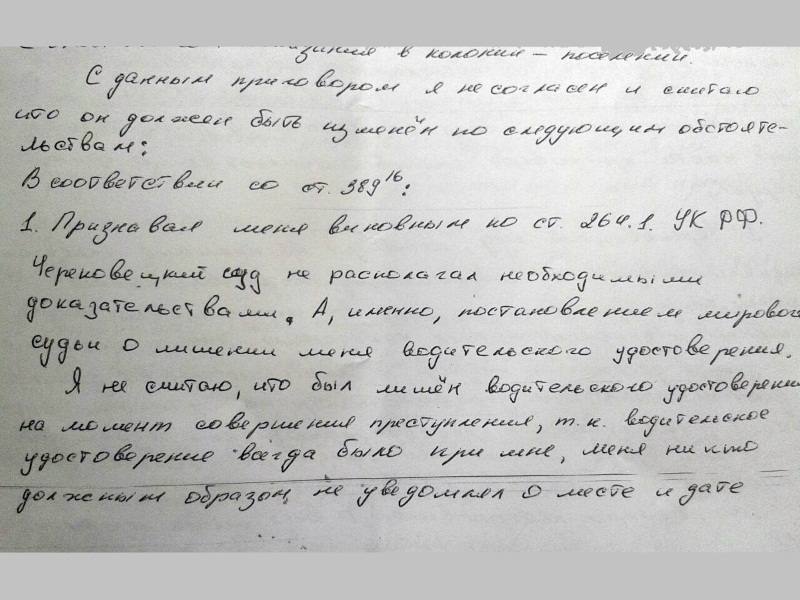 в колонии – поселении.
С данным приговором я не согласен и считаю
что он должен быть изменён по следующим обстояте-
льствам:
В соответствии со ст. 389¹⁶:
1. Признавая меня виновным по ст. 264.1. УК РФ.
Череповецкий суд не располагал необходимыми
доказательствами. А, именно, постановлением мирового
судьи о лишении меня водительского удостоверения.
Я не считаю, что был лишён водительского удостоверения
на момент совершения преступления, т.к. водительское
удостоверение всегда было при мне, меня никто
должным образом не уведомлял о месте и дате